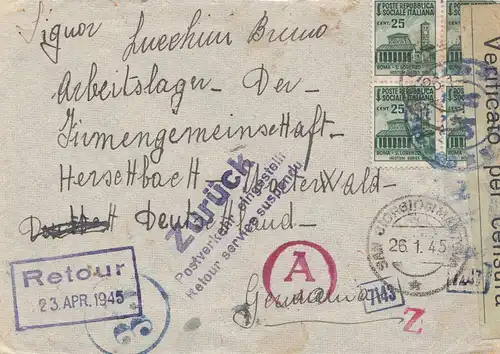 Signor Lucchini Bruno
Arbeitslager - Der -
Firmengemeinschaft -
Herschbach - Westerwald -
Deutschland -
Germania
POSTE REPUBBLICA
SOCIALE ITALIANA
CENT. 25
ROMA - S. LORENZO
HOSTIUM RABIES
POSTE REPUBBLICA
SOCIALE ITALIANA
CENT. 25
ROMA - S. LORENZO
HOSTIUM RABIES
Verificato per censura
Zurück
Postverkehr eingestellt
Retour service suspendu
Retour
23. APR. 1945
A
26.1.45
7143
Z